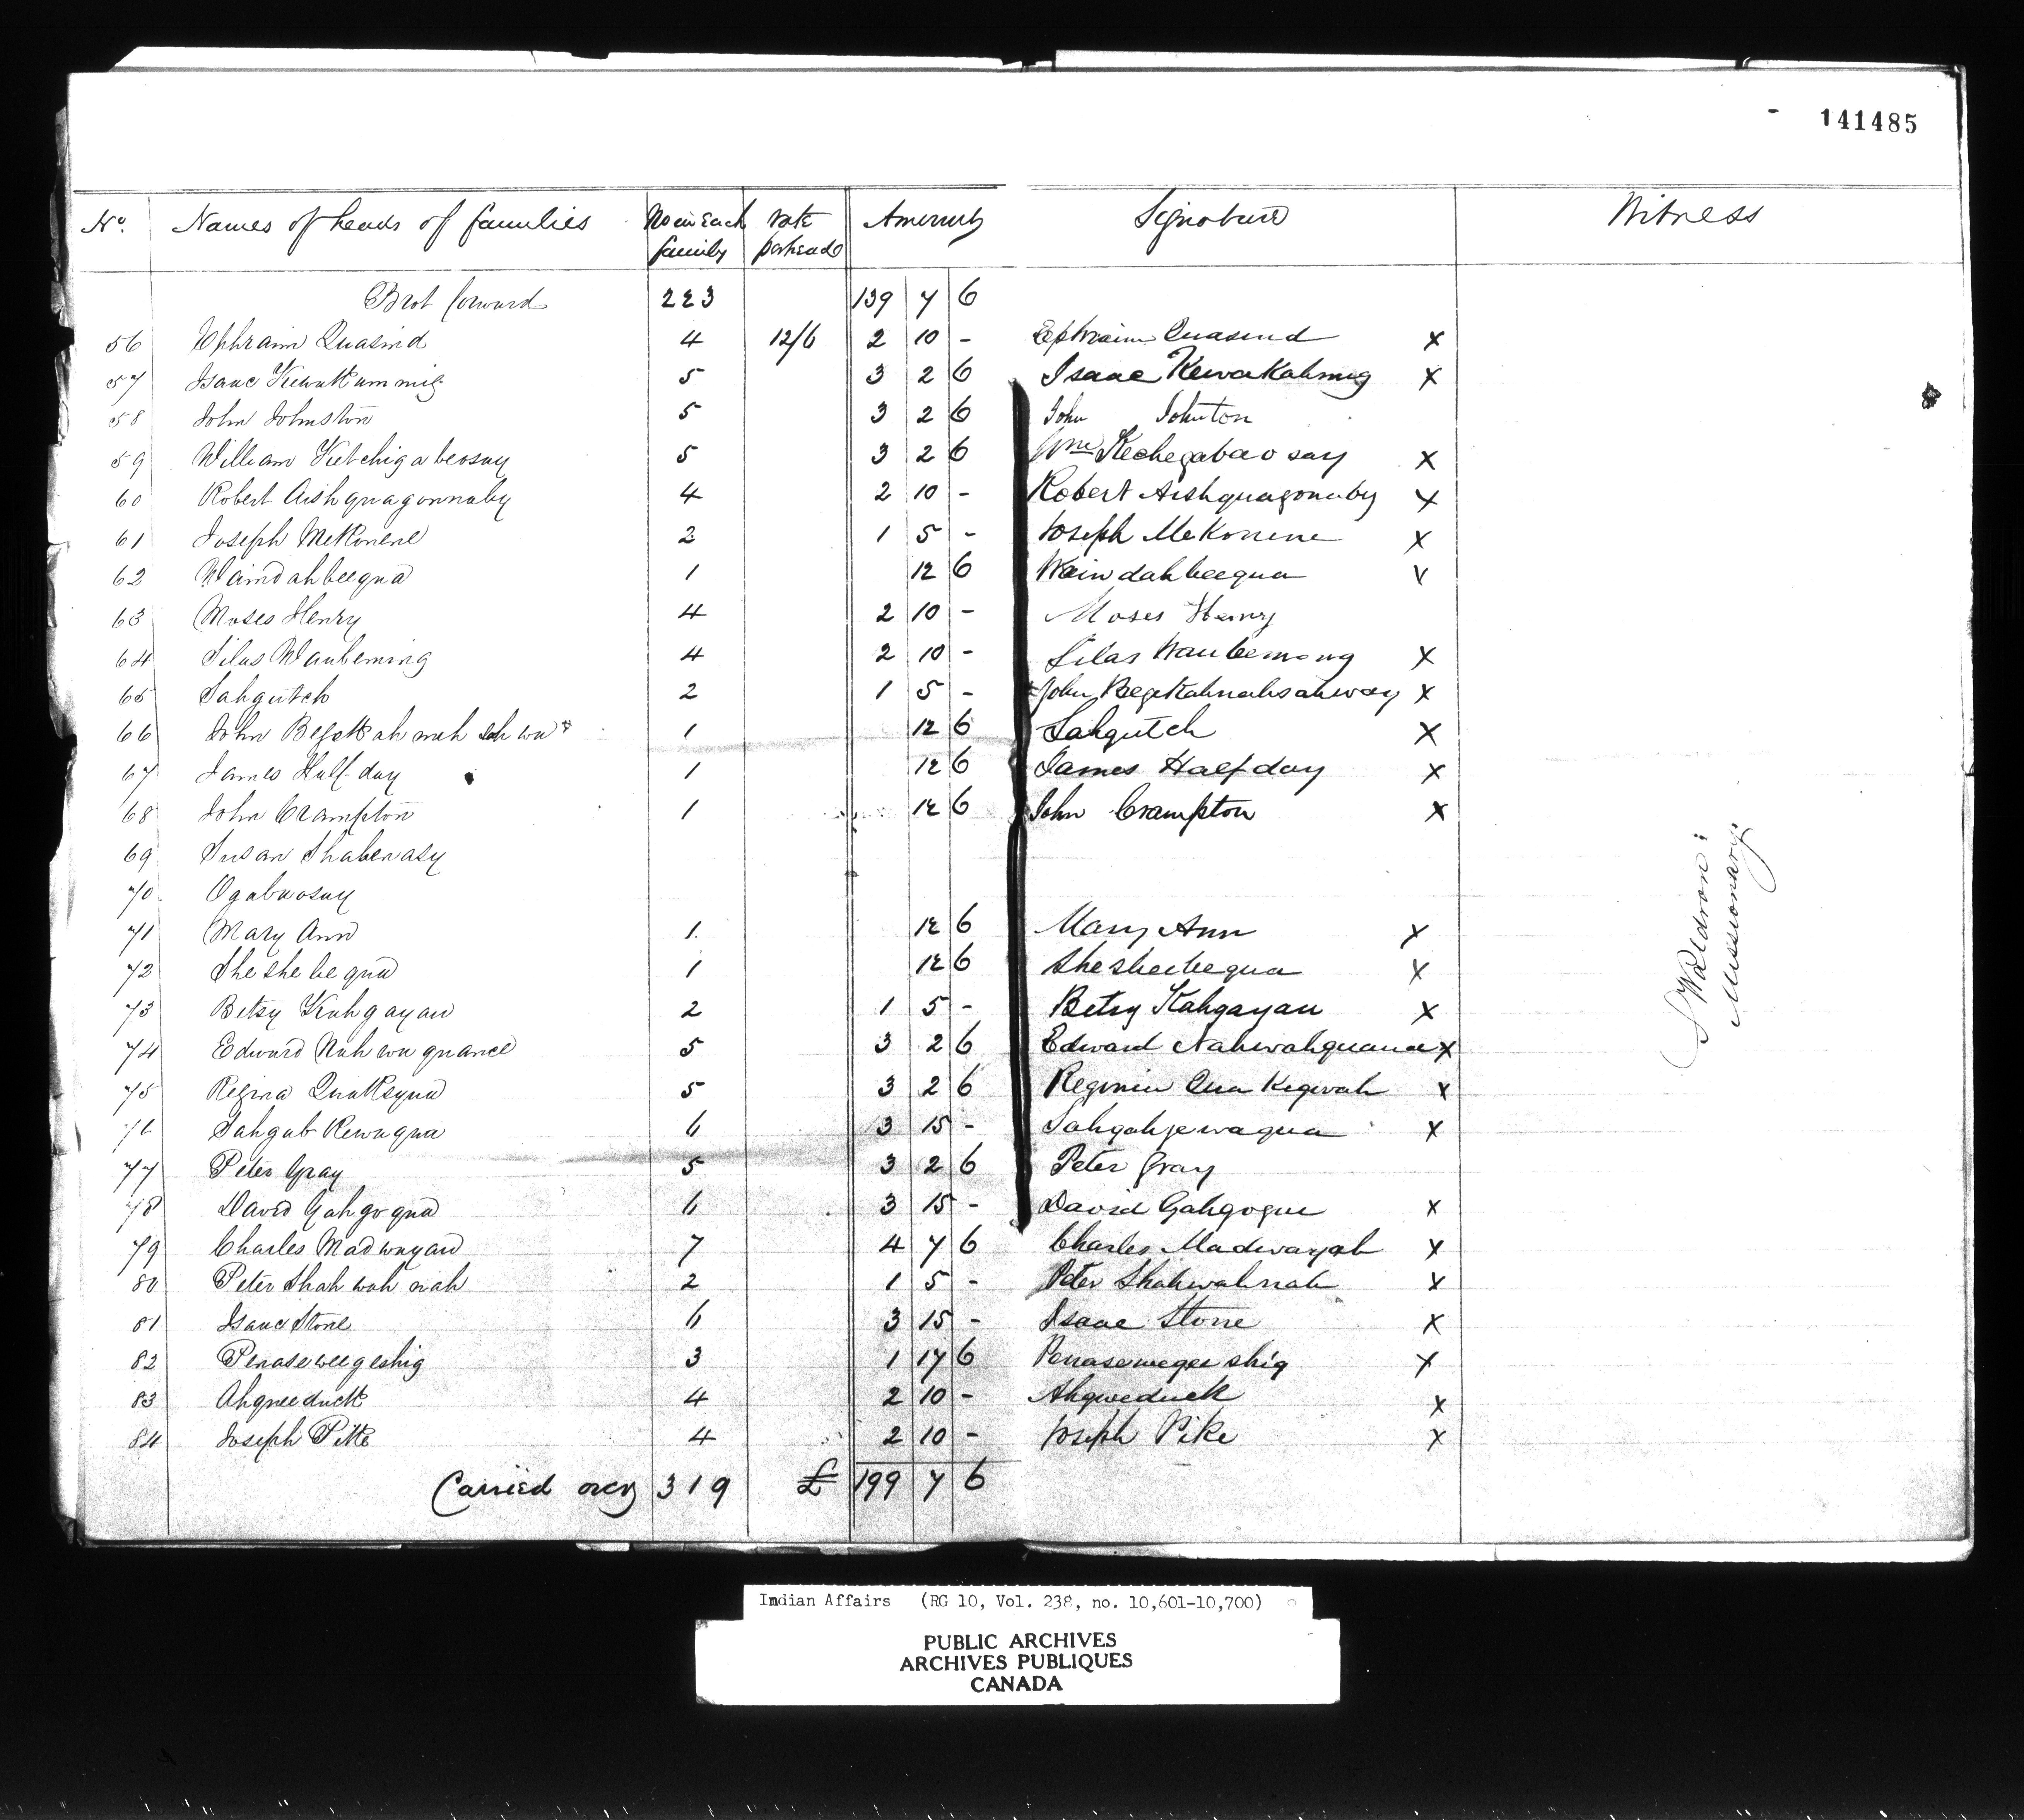 141485
No. Names of heads of families No in Each family rate per head Amount Signature Witness
Brot forward 223 139 7 6
56 Ephraim Quasind 4 12/6 2 10 - Ephraim Quasind X
57 Isaac Kewakummig 5 3 2 6 Isaac Kewakahmig X
58 John Johnston 5 3 2 6 John Johnton
59 William Ketchigabeosay 5 3 2 6 Wm Kechegabaosay X
60 Robert Aishquagonnaby 4 2 10 - Robert Aishquagonaby X
61 Joseph McKonene 2 1 5 - Joseph McKonene X
62 Waindahbeequa 1 12 6 Waindahbeequa V
63 Moses Henry 4 2 10 - Moses Henry
64 Silas Waubeming 4 2 10 - Silas Waubemong X
65 Sahgutch 2 1 5 - John Begekahnahsahway X
66 John 1 12 6 Sahgutch X
67 James Half-day 1 12 6 James Halfday X
68 John Crampton 1 12 6 John Crampton X
69 Susan Shabenasy
70 Ogabaosay
71 Mary Ann 1 12 6 Mary Ann X
72 Sheshebequa 1 12 6 Sheshebequa X
73 Betsy Kahgayan 2 1 5 - Betsy Kahgayan X
74 Edward Nahwaquance 5 3 2 6 Edward Nahwahquance X
75 Regina 5 3 2 6 X
76 6 3 15 - Sahgahjewaqua X
77 Peter Gray 5 3 2 6 Peter Gray
78 David Gahgoqua 6 3 15 - David Gahgoque X
79 Charles Madwayau 7 4 7 6 Charles Madwayah X
80 Peter Shahwahnah 2 1 5 - Peter Shahwahnah X
81 Isaac Stone 6 3 15 - Isaac Stone X
82 Penaseweegeshig 3 1 17 6 Penasewegeeshig X
83 Ahqueeduck 4 2 10 - Ahqweduck X
84 Joseph Pike 4 2 10 - Joseph Pike X
Carried over 319 £ 199 7 6
S Waldron
Missionary
Indian Affairs (RG 10, Vol. 238, no. 10,601-10,700)
PUBLIC ARCHIVES
ARCHIVES PUBLIQUES
CANADA